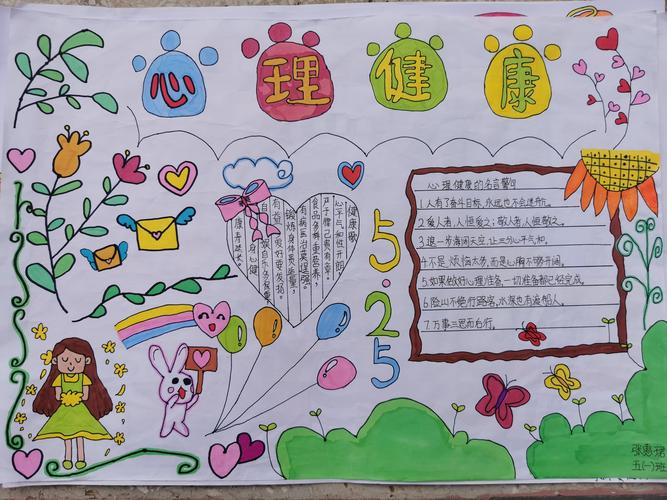 心理健康
健康歌
心平气和性开朗,
严于律己责有章。
食品多种重营养,
有病医治莫逞强。
锻炼身体
有益爱好要发扬。
自乐多保重
身心健
康寿延长。
5.25
心理健康的名言警句
1.人有了奋斗目标,永远也不会迷航。
2.爱人者,人恒爱之;敬人者,人恒敬之。
3.退一步海阔天空,让三分心平气和。
4.不是烦恼太多,而是心胸不够开阔。
5.如果做好心理准备,一切准备都已经完成。
6.险山不绝行路客,水深也有渡船人。
7.万事三思而后行。
张惠
五(一)班